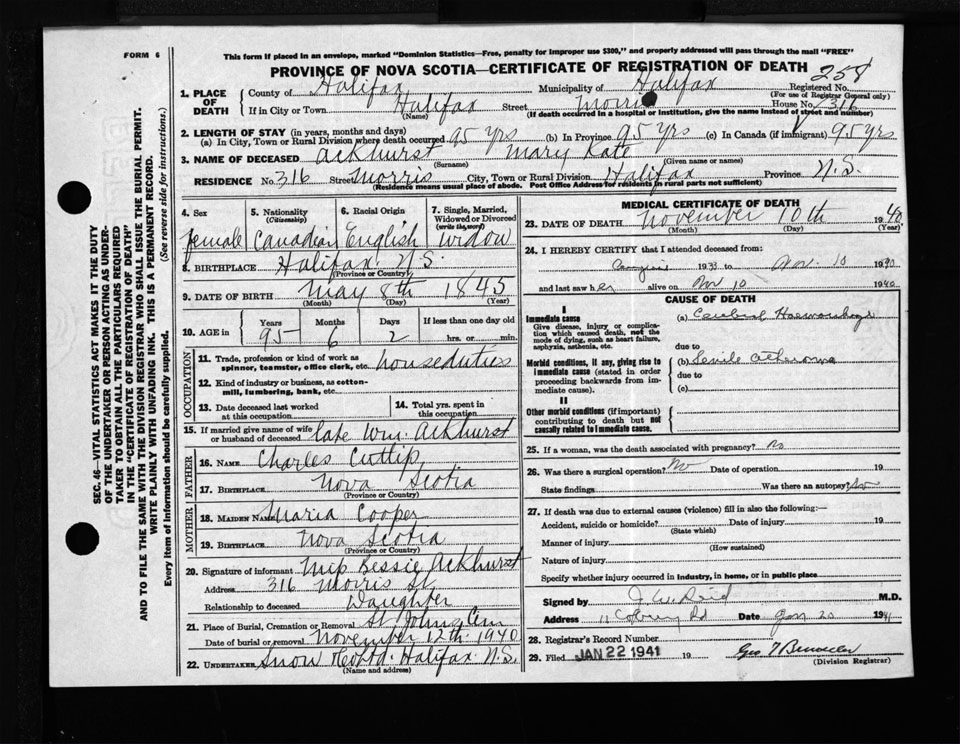 FORM 6
This form if placed in an envelope, marked "Dominion Statistics—Free, penalty for improper use $300," and properly addressed will pass through the mail "FREE"
PROVINCE OF NOVA SCOTIA—CERTIFICATE OF REGISTRATION OF DEATH 258
1. PLACE OF DEATH
County of Halifax Municipality of Halifax Registered No.
(For use of Registrar General only)
If in City or Town Halifax Street Morris House No. 316
(Name) (If death occurred in a hospital or institution, give the name instead of street and number)
2. LENGTH OF STAY (in years, months and days)
(a) In City, Town or Rural Division where death occurred 95 yrs (b) In Province 95 yrs (c) In Canada (if immigrant) 95 yrs
3. NAME OF DECEASED Ackhurst Mary Kate
(Surname) (Given name or names)
RESIDENCE No. 316 Street Morris City, Town or Rural Division Halifax Province N.S.
(Residence means usual place of abode. Post Office Address for residents in rural parts not sufficient)
4. Sex female
5. Nationality (Citizenship) Canadian
6. Racial Origin English
7. Single, Married, Widowed or Divorced (write the word) Widow
8. BIRTHPLACE Halifax N.S.
(Province or Country)
9. DATE OF BIRTH May 8th 1845
(Month) (Day) (Year)
10. AGE in Years 95 Months 6 Days 2 If less than one day old hrs. or min.
OCCUPATION
11. Trade, profession or kind of work as spinner, teamster, office clerk, etc. houseduties
12. Kind of industry or business, as cotton-mill, lumbering, bank, etc.
13. Date deceased last worked at this occupation
14. Total yrs. spent in this occupation
15. If married give name of wife or husband of deceased late Wm. Ackhurst
FATHER
16. NAME Charles Cuttip
17. BIRTHPLACE Nova Scotia
(Province or Country)
MOTHER
18. MAIDEN NAME Maria Cooper
19. BIRTHPLACE Nova Scotia
(Province or Country)
20. Signature of informant Miss Bessie Ackhurst
Address 316 Morris St
Relationship to deceased Daughter
21. Place of Burial, Cremation or Removal St Johns Cem
Date of burial or removal November 12th 1940
22. UNDERTAKER Snow & Co Ltd. Halifax N.S.
(Name and address)
MEDICAL CERTIFICATE OF DEATH
23. DATE OF DEATH November 10th 1940
(Month) (Day) (Year)
24. I HEREBY CERTIFY that I attended deceased from:
1933 to Nov. 10 1940
and last saw her alive on Nov 10 1940
CAUSE OF DEATH
I
Immediate cause
Give disease, injury or complication which caused death, not the mode of dying, such as heart failure, asphyxia, asthenia, etc.
(a) Cerebral Haemorrhage
due to
Morbid conditions, if any, giving rise to immediate cause (stated in order proceeding backwards from immediate cause).
(b) Senile
due to
(c)
II
Other morbid conditions (if important) contributing to death but not causally related to immediate cause.
25. If a woman, was the death associated with pregnancy? No
26. Was there a surgical operation? No Date of operation 19
State findings Was there an autopsy? No
27. If death was due to external causes (violence) fill in also the following:—
Accident, suicide or homicide? Date of injury 19
(State which)
Manner of injury
(How sustained)
Nature of injury
Specify whether injury occurred in industry, in home, or in public place
Signed by M.D.
Address Date Jan 20 1941
28. Registrar's Record Number
29. Filed JAN 22 1941 19
(Division Registrar)
SEC. 46—VITAL STATISTICS ACT MAKES IT THE DUTY
OF THE UNDERTAKER OR PERSON ACTING AS UNDER-
TAKER TO OBTAIN ALL THE PARTICULARS REQUIRED
IN THE "CERTIFICATE OF REGISTRATION OF DEATH"
AND TO FILE THE SAME WITH THE DIVISION REGISTRAR WHO SHALL ISSUE THE BURIAL PERMIT.
WRITE PLAINLY WITH UNFADING INK. THIS IS A PERMANENT RECORD.
Every item of information should be carefully supplied. (See reverse side for instructions.)